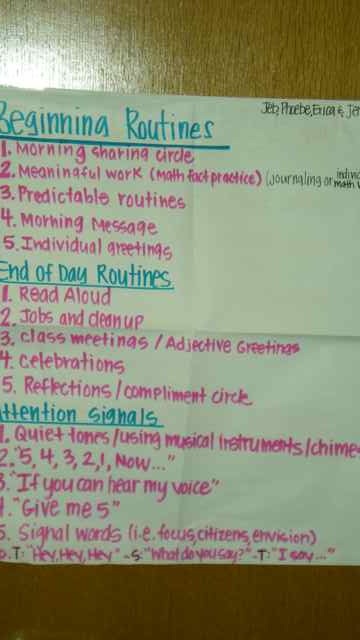 Jeb, Phoebe, Erica & Jen
Beginning Routines
1. Morning sharing circle
2. Meaningful work (math fact practice) (journaling or
3. Predictable routines
4. Morning Message
5. Individual greetings
End of Day Routines
1. Read Aloud
2. Jobs and clean up
3. Class meetings / Adjective Greetings
4. Celebrations
5. Reflections / compliment circle
Attention Signals
1. Quiet tones / using musical instruments / chime
2. "5, 4, 3, 2, 1, Now..."
3. "If you can hear my voice"
4. "Give me 5"
5. Signal words (i.e. focus, citizens, envision)
T: "Hey, Hey, Hey" - S: "What do you say?" - T: "I say..."